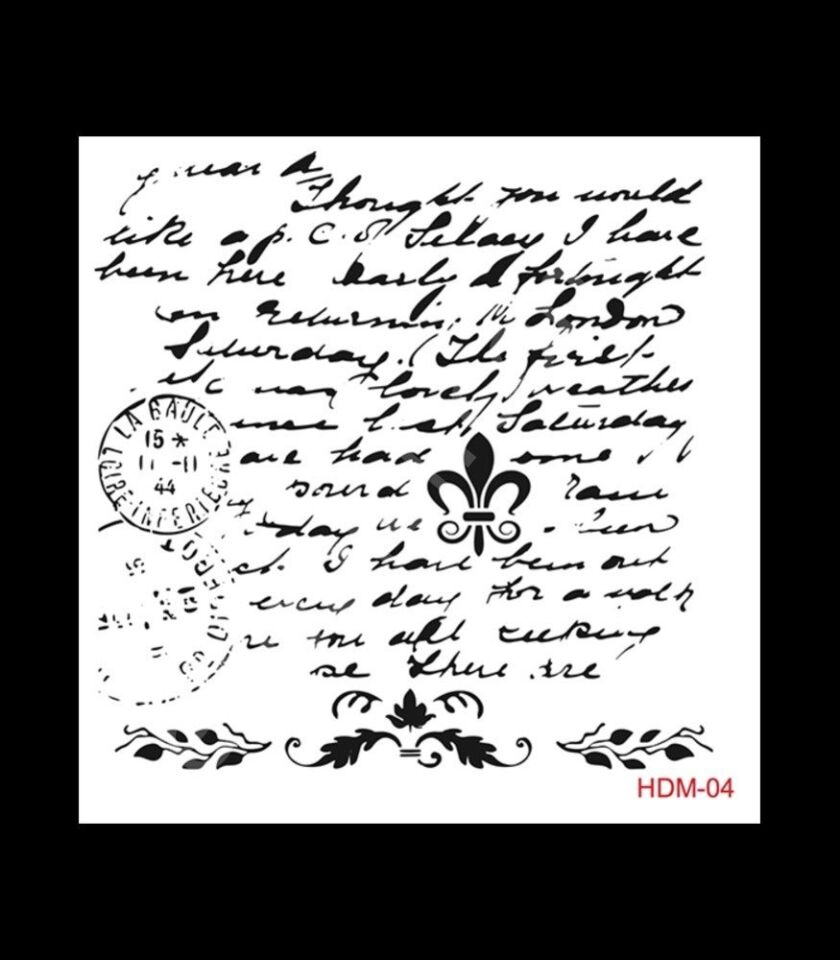 Dear A
Thought you would
like a p.c. of Selsey I have
been here nearly a fortnight
on returning to London
Saturday. (The first
was lovely weather
since last Saturday
we had some
sound rain
day we been
I have been out
every day for a walk
you all keeping
there are
LA BAULE
15 *
11 -11
44
LOIRE-INFERIEURE
HDM-04